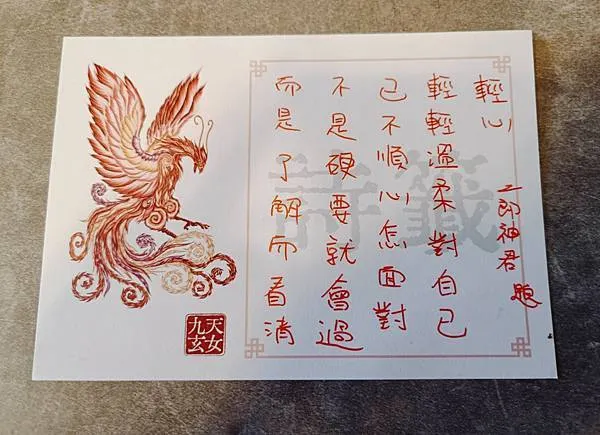 二郎神君 題
輕心
輕輕溫柔對自己
己不順心怎面對
不是硬要就會過
而是了解而看清
詩籤
九天
玄女